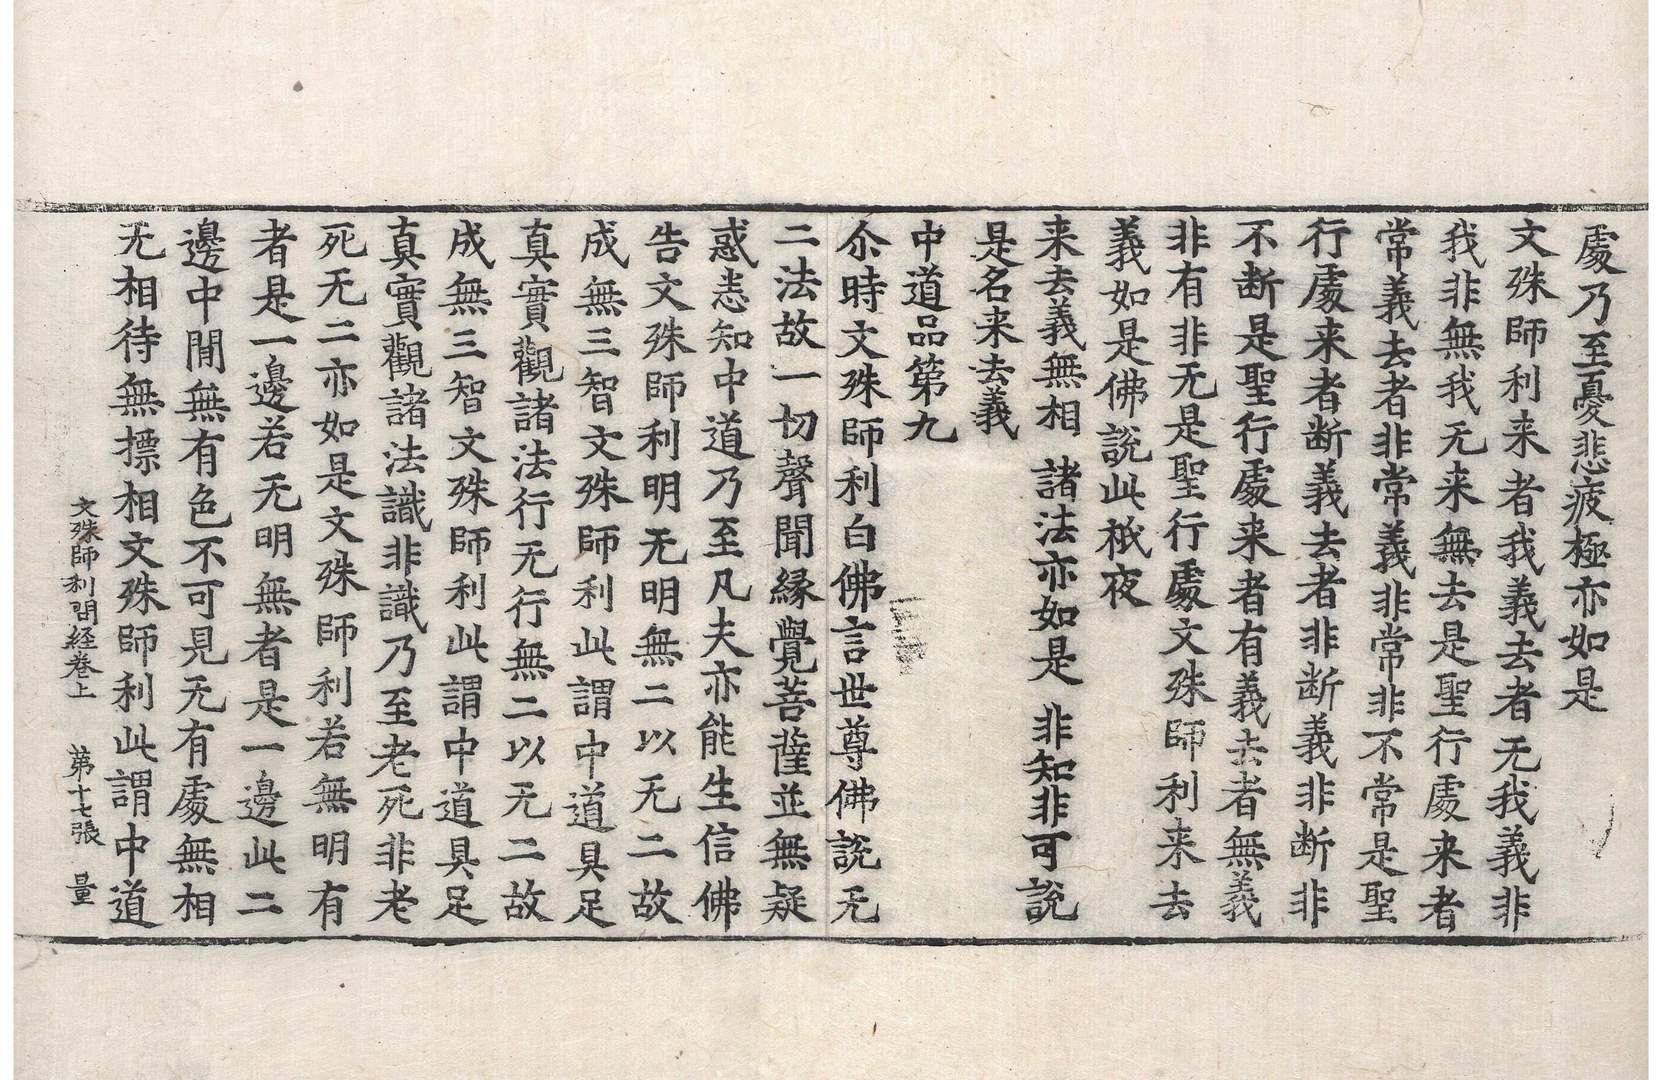 處乃至憂悲疲極亦如是
文殊師利来者我義去者无我義非
我非無我无来無去是聖行處来者
常義去者非常義非常非不常是聖
行處来者断義去者非断義非断非
不断是聖行處来者有義去者無義
非有非无是聖行處文殊師利来去
義如是佛說此祇夜
来去義無相 諸法亦如是 非知非可說
是名来去義
中道品第九
尒時文殊師利白佛言世尊佛說无
二法故一切聲聞緣覺菩薩並無疑
惑悉知中道乃至凡夫亦能生信佛
告文殊師利明无明無二以无二故
成無三智文殊師利此謂中道具足
真實觀諸法行无行無二以无二故
成無三智文殊師利此謂中道具足
真實觀諸法識非識乃至老死非老
死无二亦如是文殊師利若無明有
者是一邊若无明無者是一邊此二
邊中間無有色不可見无有處無相
无相待無摽相文殊師利此謂中道
文殊師利問経卷上 第十七張 量